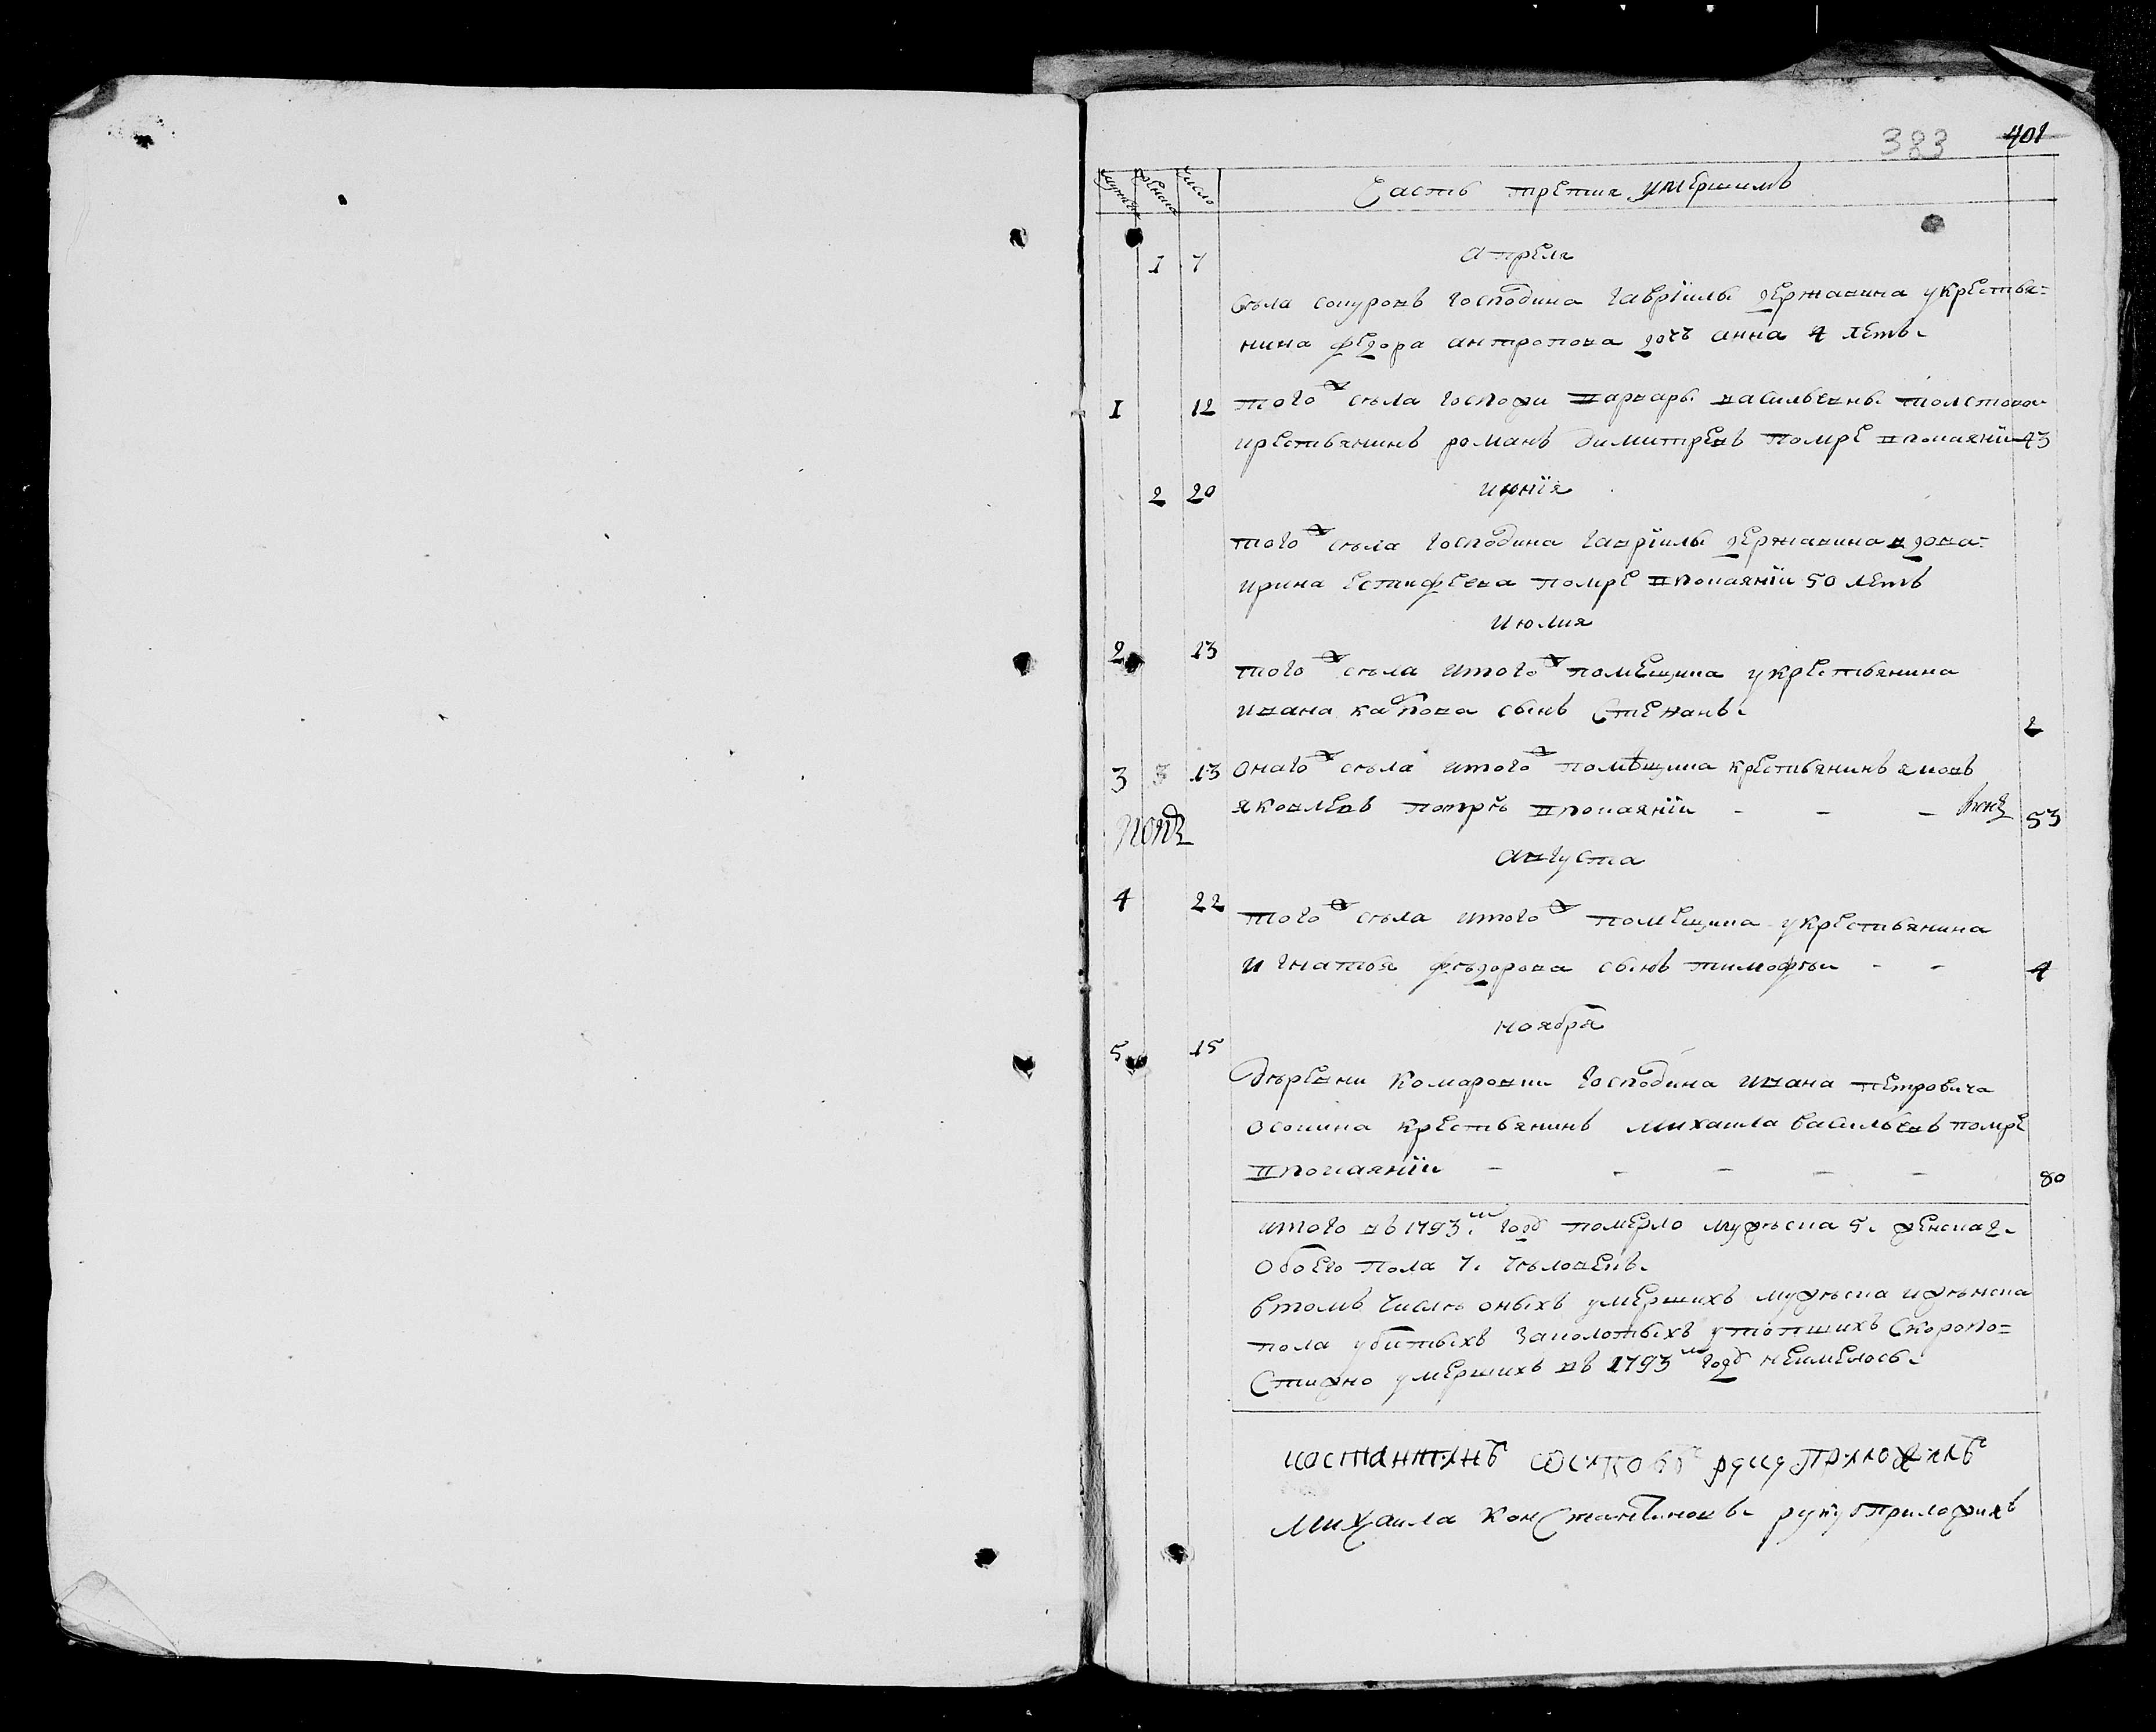 383 401
мужска женска число Часть третия умершимъ
апреля
1 7
Съла сокуровъ господина гавріилы державина у крестья=
нина федора антропова дочъ анна 4 летъ
1 12 того ж съла госпожи варвары васильевны толстова
крестьянинъ романъ димитревъ помре в покаяніи 43
июнія
2 20
того ж съла господина гавріилы державина вдова=
ирина естифеева помре в покаяніи 50 летъ
июлия
2 13
того ж съла и того ж помещика у крестьянина
ивана карпова сынъ Степанъ
2
3 3 13 онаго ж съла и того ж помѣщика крестьянинъ яковъ
яковлевъ помрѣ в покаяніи - - - 53
августа
4 22
того ж съла и того ж помещика у крестьянина
игнатья фъдорова сынъ тимофъи - - 4
ноября
5 15
дъревни комаровки господина ивана петровича
осокина крестьянинъ михаила васильевъ помре
в покаяніи - - - - - 80
итого въ 1793м годѣ померло мужъска 5. женска 2.
обоего пола 7. чъловекъ.
втомъ числъ оныхъ умершихъ мужъска и жънска
пола убитыхъ заколотыхъ утопшихъ скоропо=
стижно умершихъ въ 1793м годѣ неимелось.
костантинъ руку приложилъ
михаила константиновъ руку приложилъ